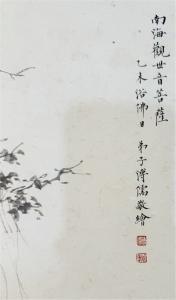 南海觀世音菩薩
乙未浴佛日
弟子溥儒敬繪